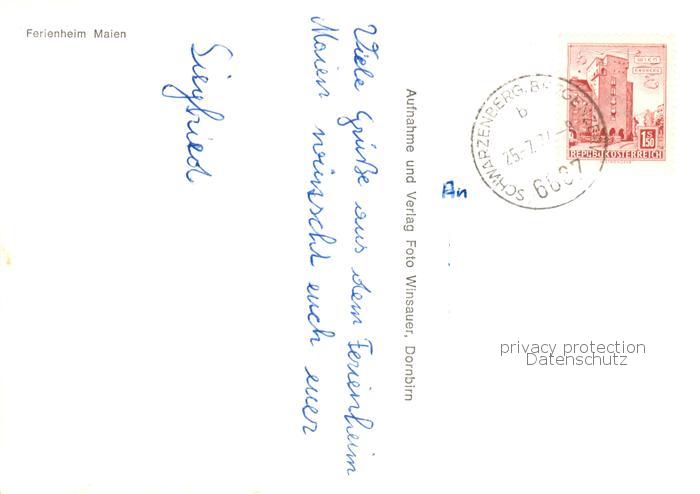 Ferienheim Maien
Viele Grüße aus dem Ferienheim
Maien wünscht euch euer
Siegfried
Aufnahme und Verlag Foto Winsauer, Dornbirn
An
SCHWARZENBERG, BREGENZERW
b
25.-7.77-8
6867
WIEN
ERDBERG
1.50
REPUBLIK ÖSTERREICH
privacy protection
Datenschutz